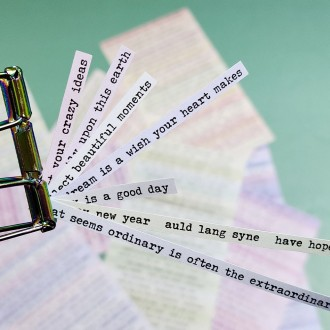 your crazy ideas
you upon this earth
beautiful moments
dream is a wish your heart makes
is a good day
new year auld lang syne have hope
seems ordinary is often the extraordinar